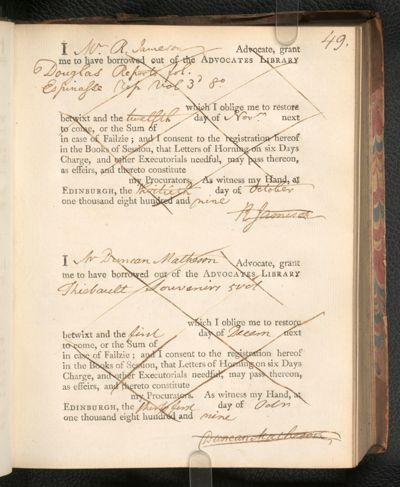 49.
I Mr R. Jameson Advocate, grant
me to have borrowed out of the ADVOCATES LIBRARY
Douglas Reports fol.
Espinasse Rep Vol 3d 8o
which I oblige me to restore
betwixt and the twelfth day of Novr next
to come, or the Sum of
in case of Failzie; and I consent to the registration hereof
in the Books of Session, that Letters of Horning on six Days
Charge, and other Executorials needful, may pass thereon,
as effeirs, and thereto constitute
my Procurators. As witness my Hand, at
EDINBURGH, the thirtieth day of October
one thousand eight hundred and nine
R. Jameson
I Mr Duncan Matheson Advocate, grant
me to have borrowed out of the ADVOCATES LIBRARY
Thiebault Souvenirs 5 vol
which I oblige me to restore
betwixt and the first day of Decem next
to come, or the Sum of
in case of Failzie; and I consent to the registration hereof
in the Books of Session, that Letters of Horning on six Days
Charge, and other Executorials needful, may pass thereon,
as effeirs, and thereto constitute
my Procurators. As witness my Hand, at
EDINBURGH, the thirty first day of Octr
one thousand eight hundred and nine
Duncan Matheson